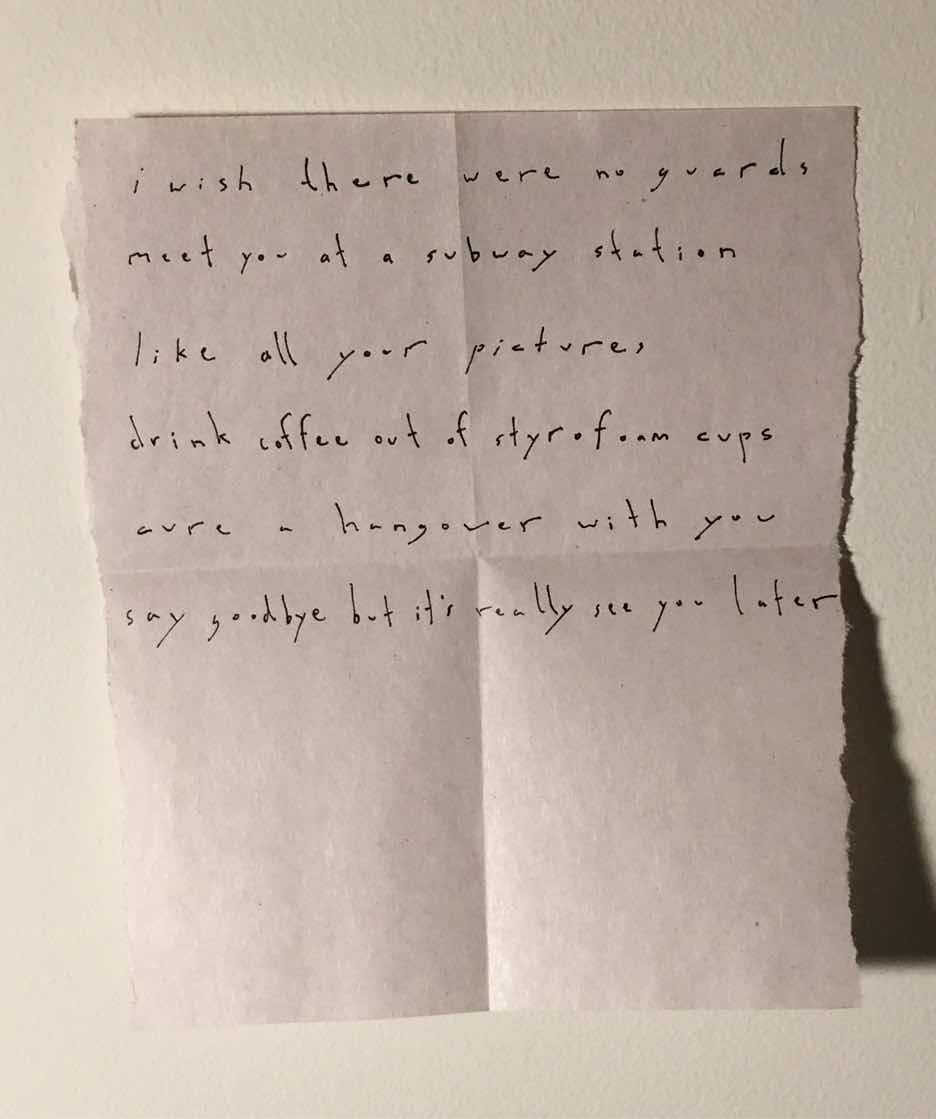 i wish there were no guards
meet you at a subway station
like all your pictures
drink coffee out of styrofoam cups
cure a hangover with you
say goodbye but it's really see you later